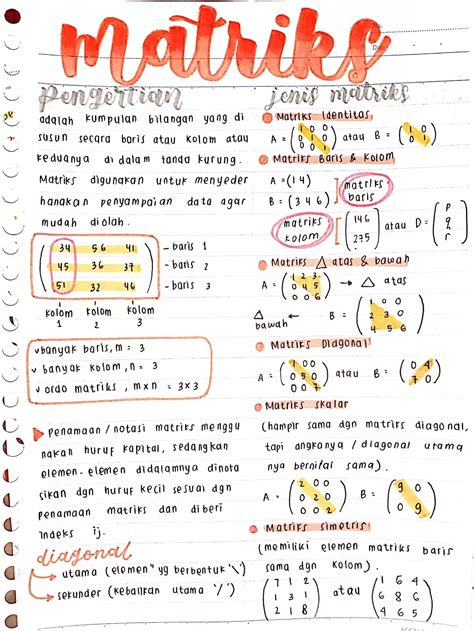 matriks
pengertian
adalah kumpulan bilangan yang di
susun secara baris atau kolom atau
keduanya di dalam tanda kurung.
Matriks digunakan untuk menyeder
hanakan penyampaian data agar
mudah diolah.
34 56 41 - baris 1
45 36 37 - baris 2
51 32 46 - baris 3
kolom kolom kolom
1 2 3
✓banyak baris, m = 3
✓banyak kolom, n = 3
✓ordo matriks, m×n = 3×3
▶ penamaan / notasi matriks menggu
nakan huruf kapital, sedangkan
elemen-elemen didalamnya dinota
sikan dgn huruf kecil sesuai dgn
penamaan matriks dan diberi
indeks ij.
diagonal
→ utama (elemen" yg berbentuk '\')
→ sekunder (kebalikan utama '/')
jenis matriks
Matriks Identitas
A = (1 0 0 / 0 1 0 / 0 0 1) atau B = (1 0 / 0 1)
Matriks Baris & Kolom
A = (1 4)
B = (3 4 6)
matriks baris
matriks kolom
(146 / 275) atau D = (p / q / r)
Matriks △ atas & bawah
A = (1 2 3 / 0 4 5 / 0 0 6) → △ atas
△ bawah ← B = (1 0 0 / 2 3 0 / 4 5 6)
Matriks Diagonal
A = (1 0 0 / 0 5 0 / 0 0 7) atau B = (0 4 / 7 0)
Matriks skalar
(hampir sama dgn matriks diagonal,
tapi angkanya / diagonal utama
nya bernilai sama).
A = (2 0 0 / 0 2 0 / 0 0 2) B = (9 0 / 0 9)
Matriks simetris
(memiliki elemen matriks baris
sama dgn kolom).
(7 1 2 / 1 3 1 / 2 1 8) atau (1 6 4 / 6 8 6 / 4 6 5)